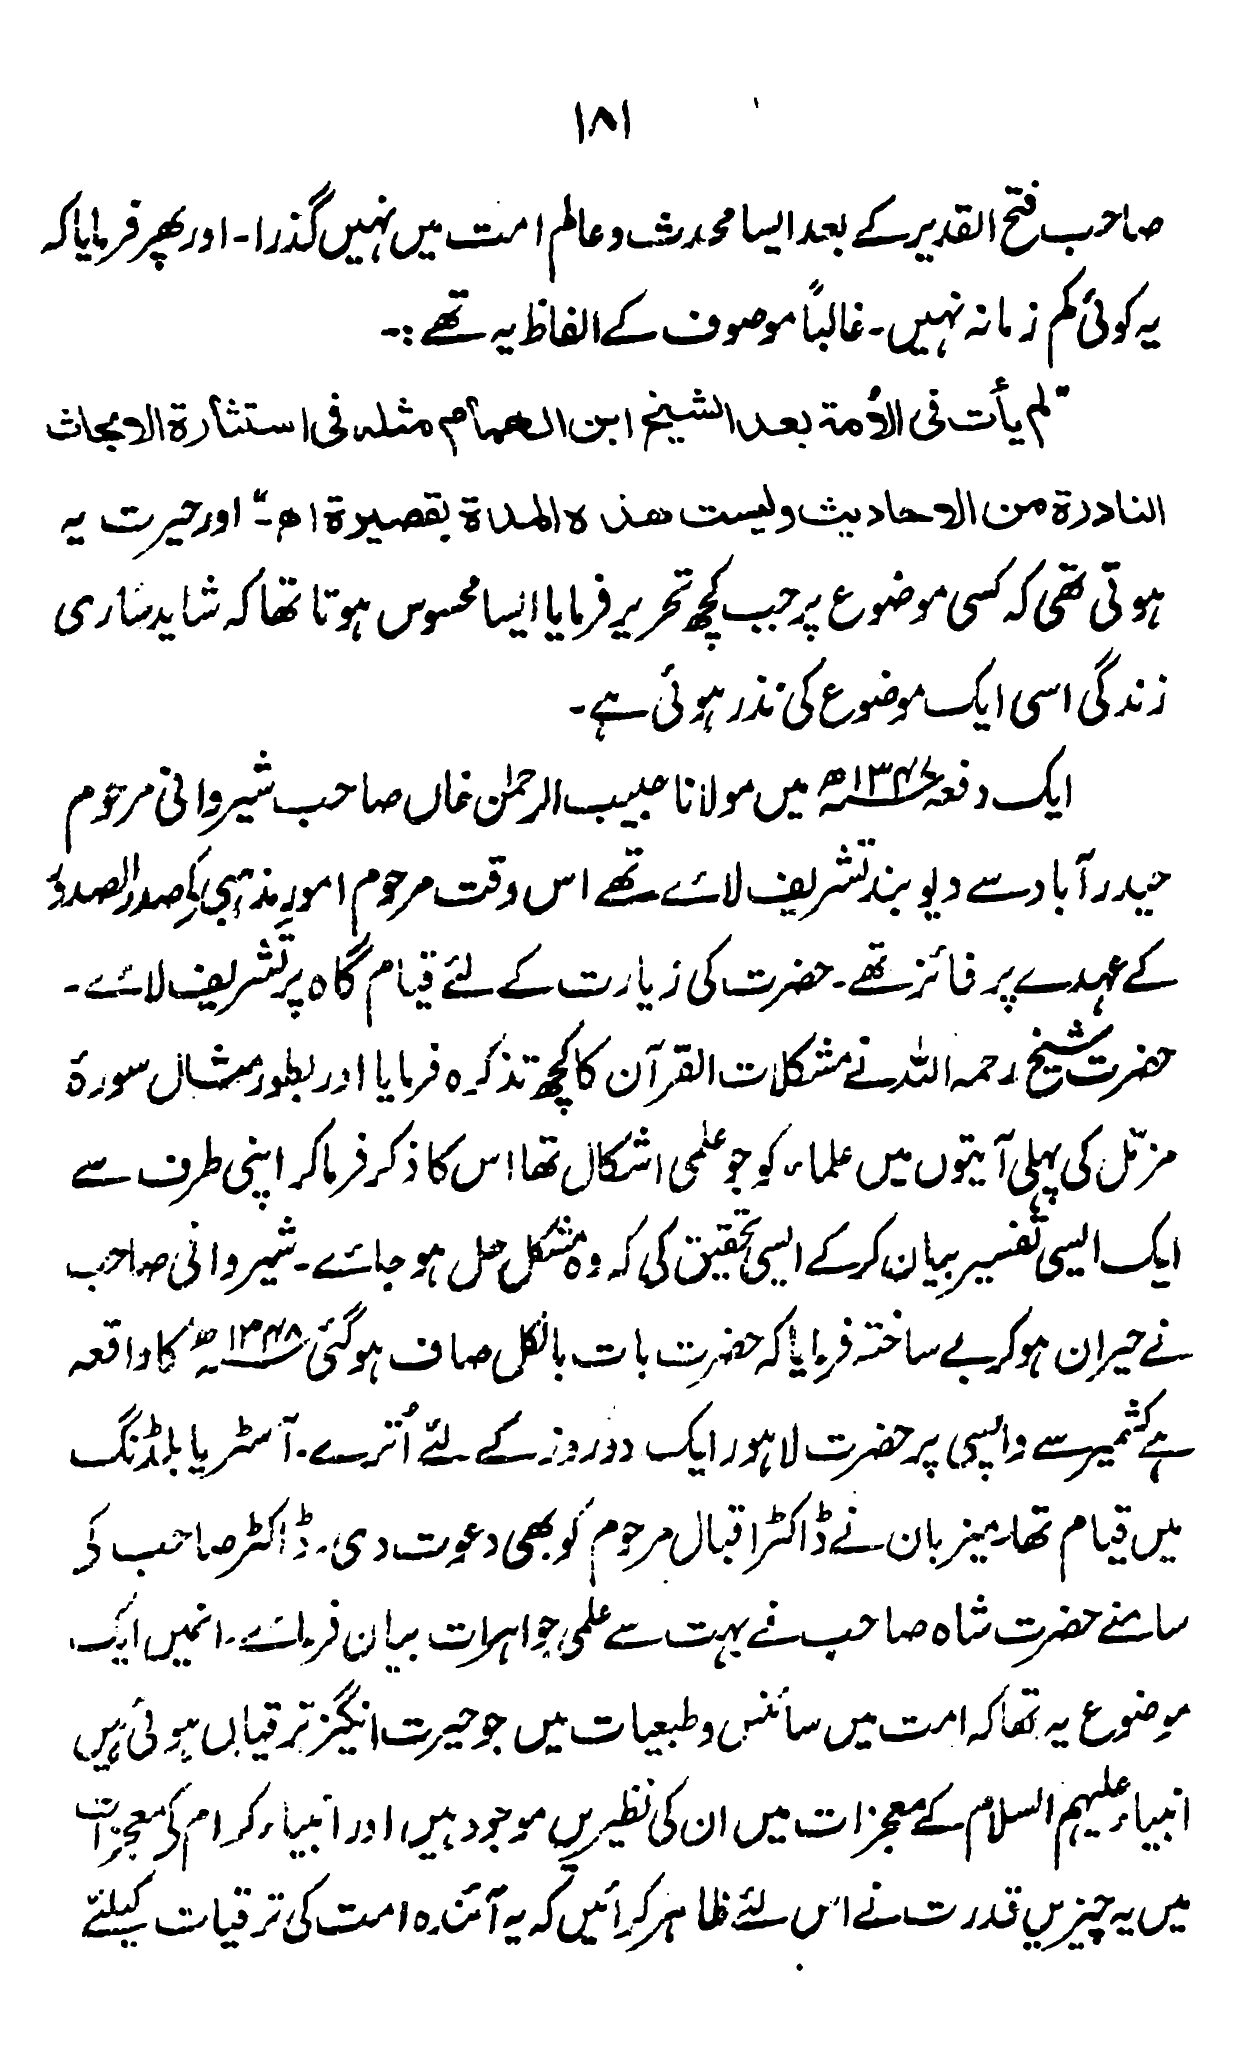 ۱۸۱
صاحب فتح القدیر کے بعد ایسا محدث و عالم امت میں نہیں گذرا۔ اور پھر فرمایا کہ
یہ کوئی کم زمانہ نہیں۔ غالباً موصوف کے الفاظ یہ تھے :۔
"لم یأت فی الأمة بعد الشیخ ابن الهمام مثله فی استثارة الابحاث
النادرة من الاحادیث ولیست هذه المدة بقصیرة اھ۔" اور حیرت یہ
ہوتی تھی کہ کسی موضوع پر جب کچھ تحریر فرمایا ایسا محسوس ہوتا تھا کہ شاید ساری
زندگی اسی ایک موضوع کی نذر ہوئی ہے۔
ایک دفعہ ۱۳۴۷ھ میں مولانا حبیب الرحمٰن خاں صاحب شیروانی مرحوم
حیدر آباد سے دیوبند تشریف لائے تھے اس وقت مرحوم امورِ مذہبی کے صدر الصدور
کے عہدے پر فائز تھے۔ حضرت کی زیارت کے لئے قیام گاہ پر تشریف لائے۔
حضرت شیخ رحمہ اللہ نے مشکلات القرآن کا کچھ تذکرہ فرمایا اور بطور مثال سورۂ
مزمّل کی پہلی آیتوں میں علماء کو جو علمی اشکال تھا اس کا ذکر فرما کر اپنی طرف سے
ایک ایسی تفسیر بیان کرکے ایسی تحقیق کی کہ وہ مشکل حل ہو جائے۔ شیروانی صاحب
نے حیران ہو کر بے ساختہ فرمایا کہ حضرت بات بالکل صاف ہو گئی ۱۳۴۸ھ کا واقعہ
ہے کشمیر سے واپسی پر حضرت لاہور ایک دو روز کے لئے اُترے۔ آسٹریا بلڈنگ
میں قیام تھا۔ میزبان نے ڈاکٹر اقبال مرحوم کو بھی دعوت دی۔ ڈاکٹر صاحب کے
سامنے حضرت شاہ صاحب نے بہت سے علمی جواہرات بیان فرمائے۔ انہیں ایک
موضوع یہ تھا کہ امت میں سائنس و طبعیات میں جو حیرت انگیز ترقیاں ہوئی ہیں
انبیاء علیہم السلام کے معجزات میں ان کی نظیریں موجود ہیں اور انبیاء کرام کے معجزات
میں یہ چیزیں قدرت نے اس لئے ظاہر کرائیں کہ یہ آئندہ امت کی ترقیات کیلئے